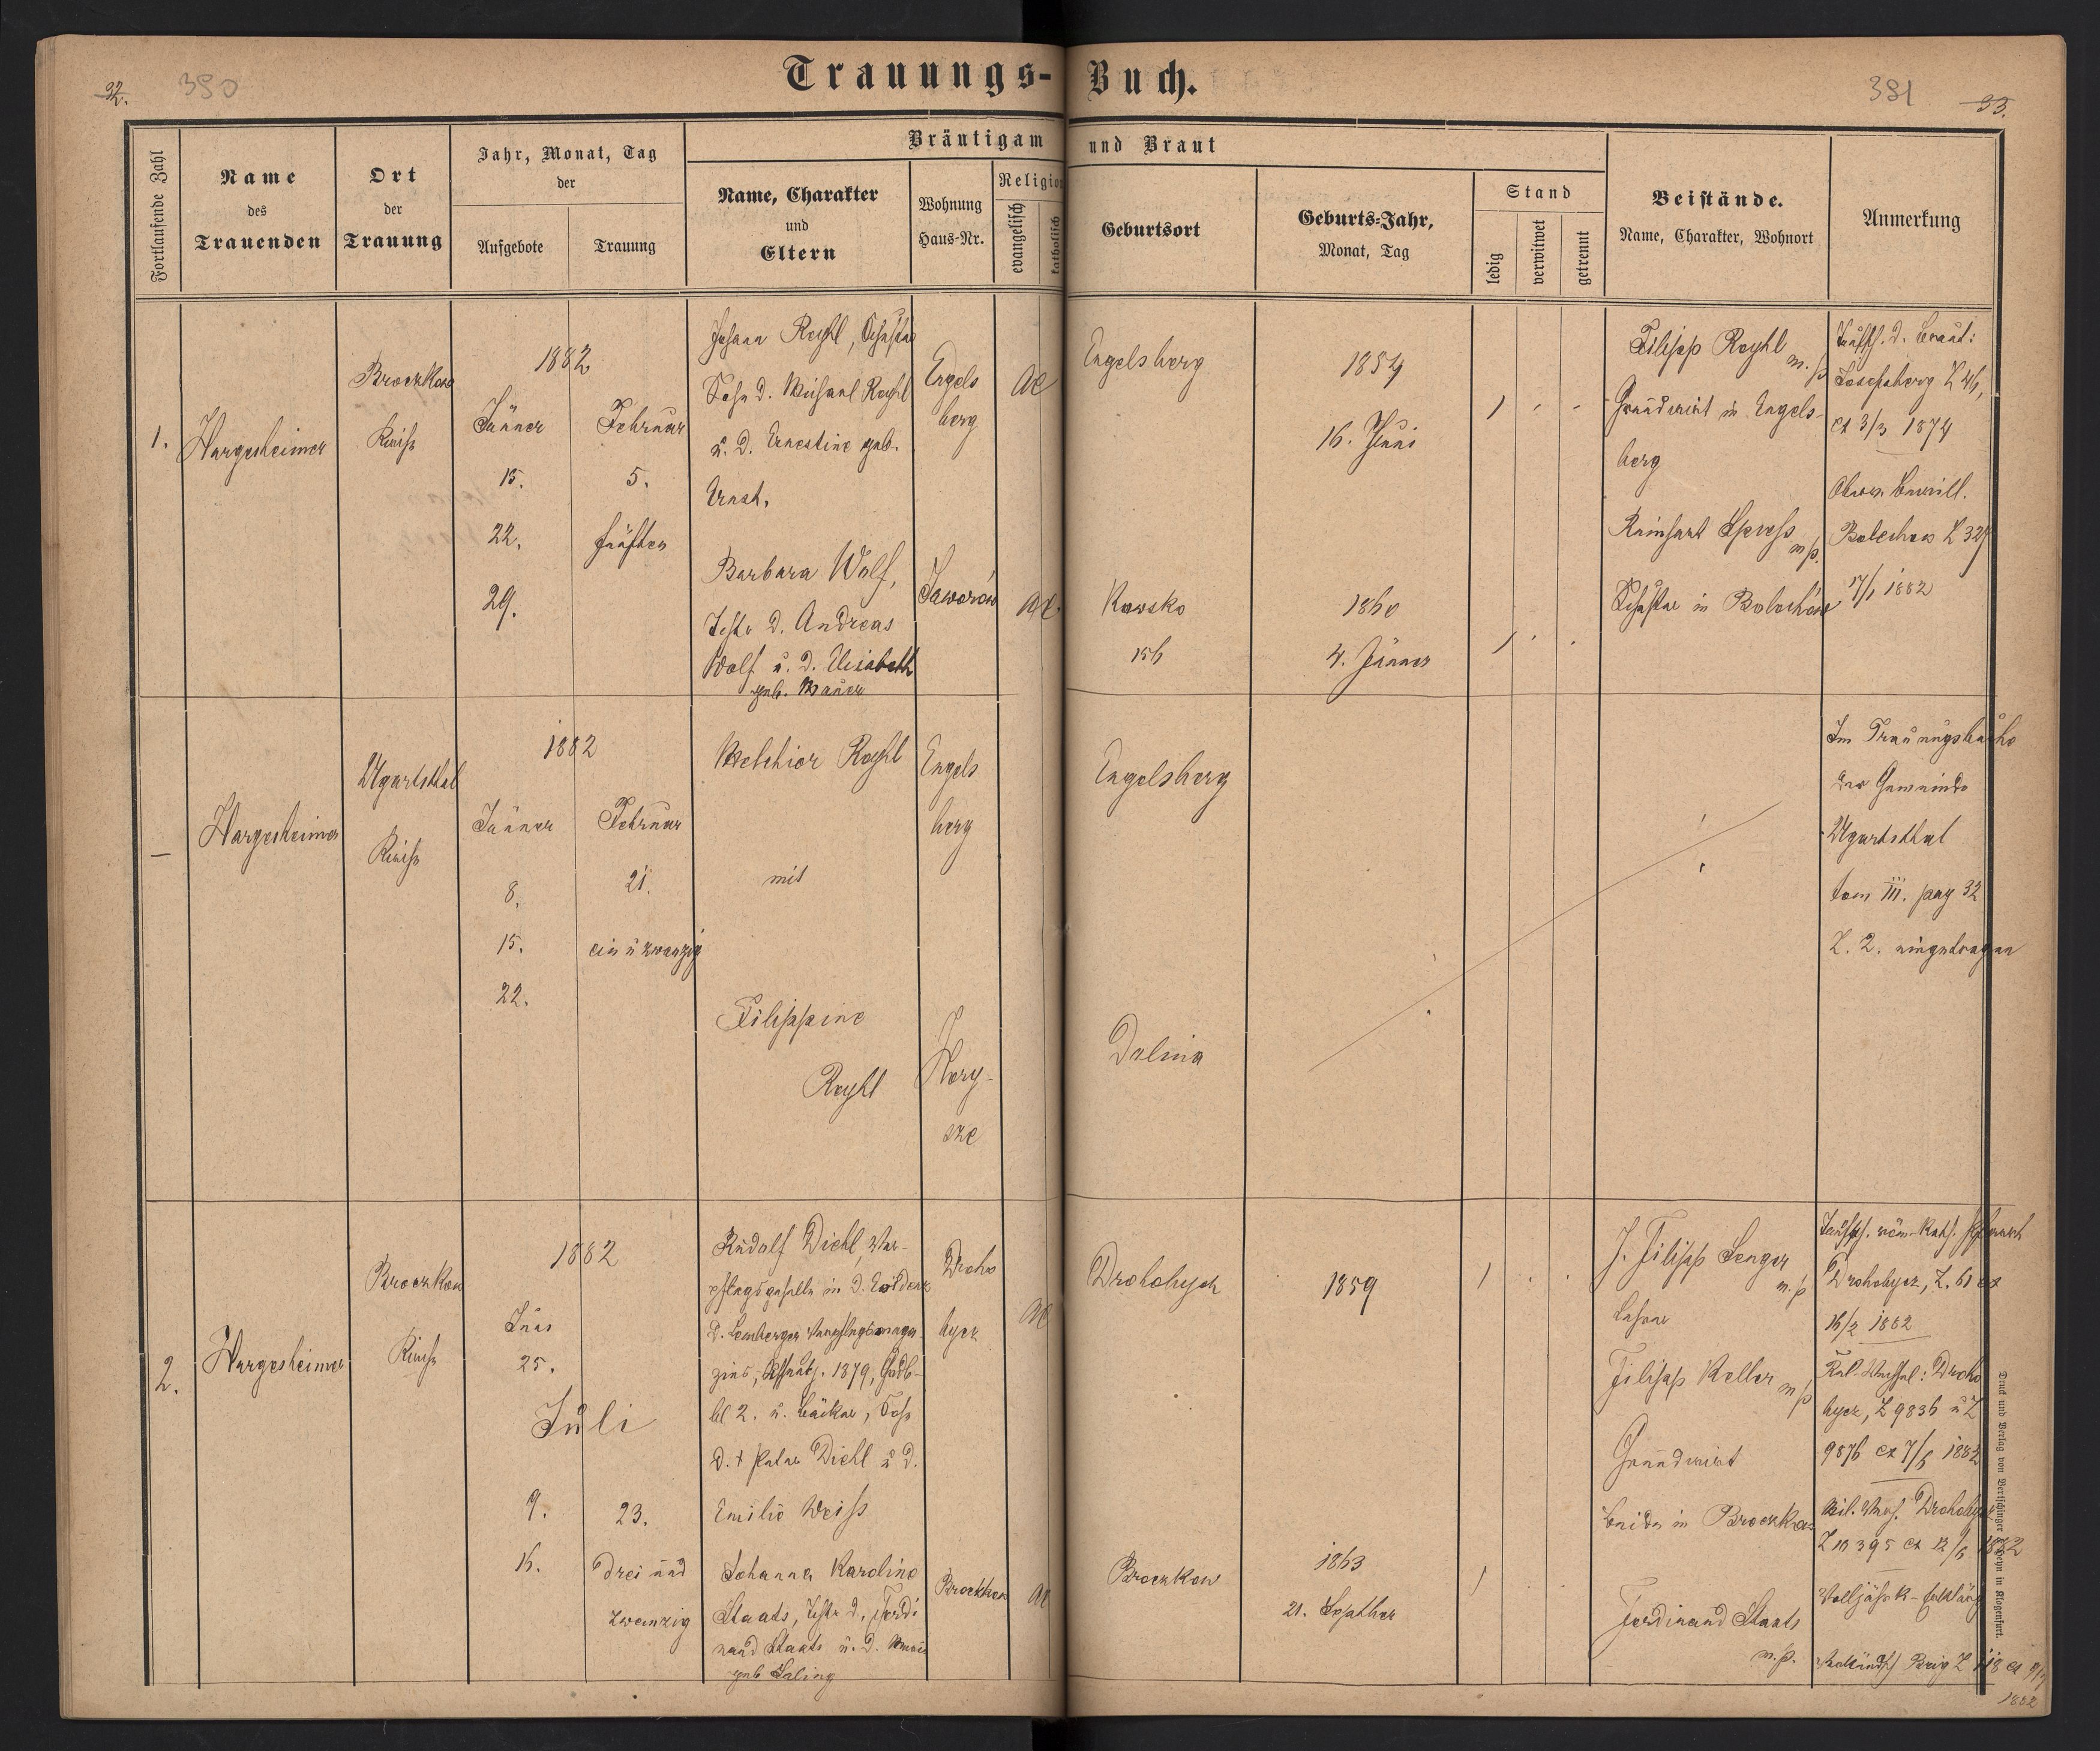 32.
380
Trauungs-Buch.
381
33.
Fortlaufende Zahl
Name
des
Trauenden
Ort
der
Trauung
Jahr, Monat, Tag
der
Aufgebote
Trauung
Bräutigam und Braut
Name, Charakter
und
Eltern
Wohnung
Haus-Nr.
Religio
evangelisch
katholisch
Geburtsort
Geburts-Jahr,
Monat, Tag
Stand
ledig
verwitwet
getrennt
Beistände.
Name, Charakter, Wohnort
Anmerkung
1.
Hargesheimer
Broczkow
Kirche
1882
Jänner
15.
22.
29.
Februar
5.
fünften
Johann Reyhl, Schuster
Sohn d. Michael Reyhl
u. d. Ernestine geb.
Ernst.
Engels
berg
AC
Engelsberg
1854
16. Juni
1
Filipp Reyhl m. p.
Grundwirt in Engels-
berg
Reinhart m. p.
Schuster in Bolechow
Taufsch. d. Braut:
Josefsberg Z 46,
ex 3/3 1874
Bolechow Z 327
17/1 1882
Barbara Wolf,
Tochter d. Andreas
Wolf u. d. Elisabeth
geb. Mauer
Jaworów
AC
Kawsko
156
1860
4. Jänner
1
–
Hargesheimer
Ugartsthal
Kirche
1882
Jänner
8.
15.
22.
Februar
21.
ein u zwanzig
Melchior Reyhl
mit
Filippine
Reyhl
Engels
berg
Engelsberg
Dolina
Im Trauungsbuche
der Gemeinde
Ugartsthal
tom III. pag 32
Z. 2. eingetragen
2.
Hargesheimer
Broczkow
Kirche
1882
Juni
25.
Juli
9.
16.
23.
drei und
zwanzig
Rudolf Diehl, Ver-
pflegsgehülfe in d. Evidenz
d. Lemberger Verpflegsmaga
zins, 1879,
bl 2. u. Bäcker, Sohn
d. † Peter Diehl u d.
Emilie Weiss
Droho
bycz
AC
Drohobycz
1859
1
J. Filipp Senger
m. p.
Lehrer
Filipp Keller m p
Grundwirt
beide in Broczkow
Ferdinand Staats
m. p.
Taufsch. röm-kath.
Drohobycz, Z. 61 ex
16/2 1882
Droho
bycz, Z 9836 u Z
9876 ex 7/6 1882
Drohobycz
Z 10395 ex 12/6 1882
Volljährk-Erklärg
1882
Johanna Karoline
Staats, Tochter d. Ferdi
nand Staats u. d. Maria
geb Saling
Broczkow
AC
Broczkow
1863
21. September
1
Druck und Verlag von Bertschinger & Heyn in Klagenfurt.